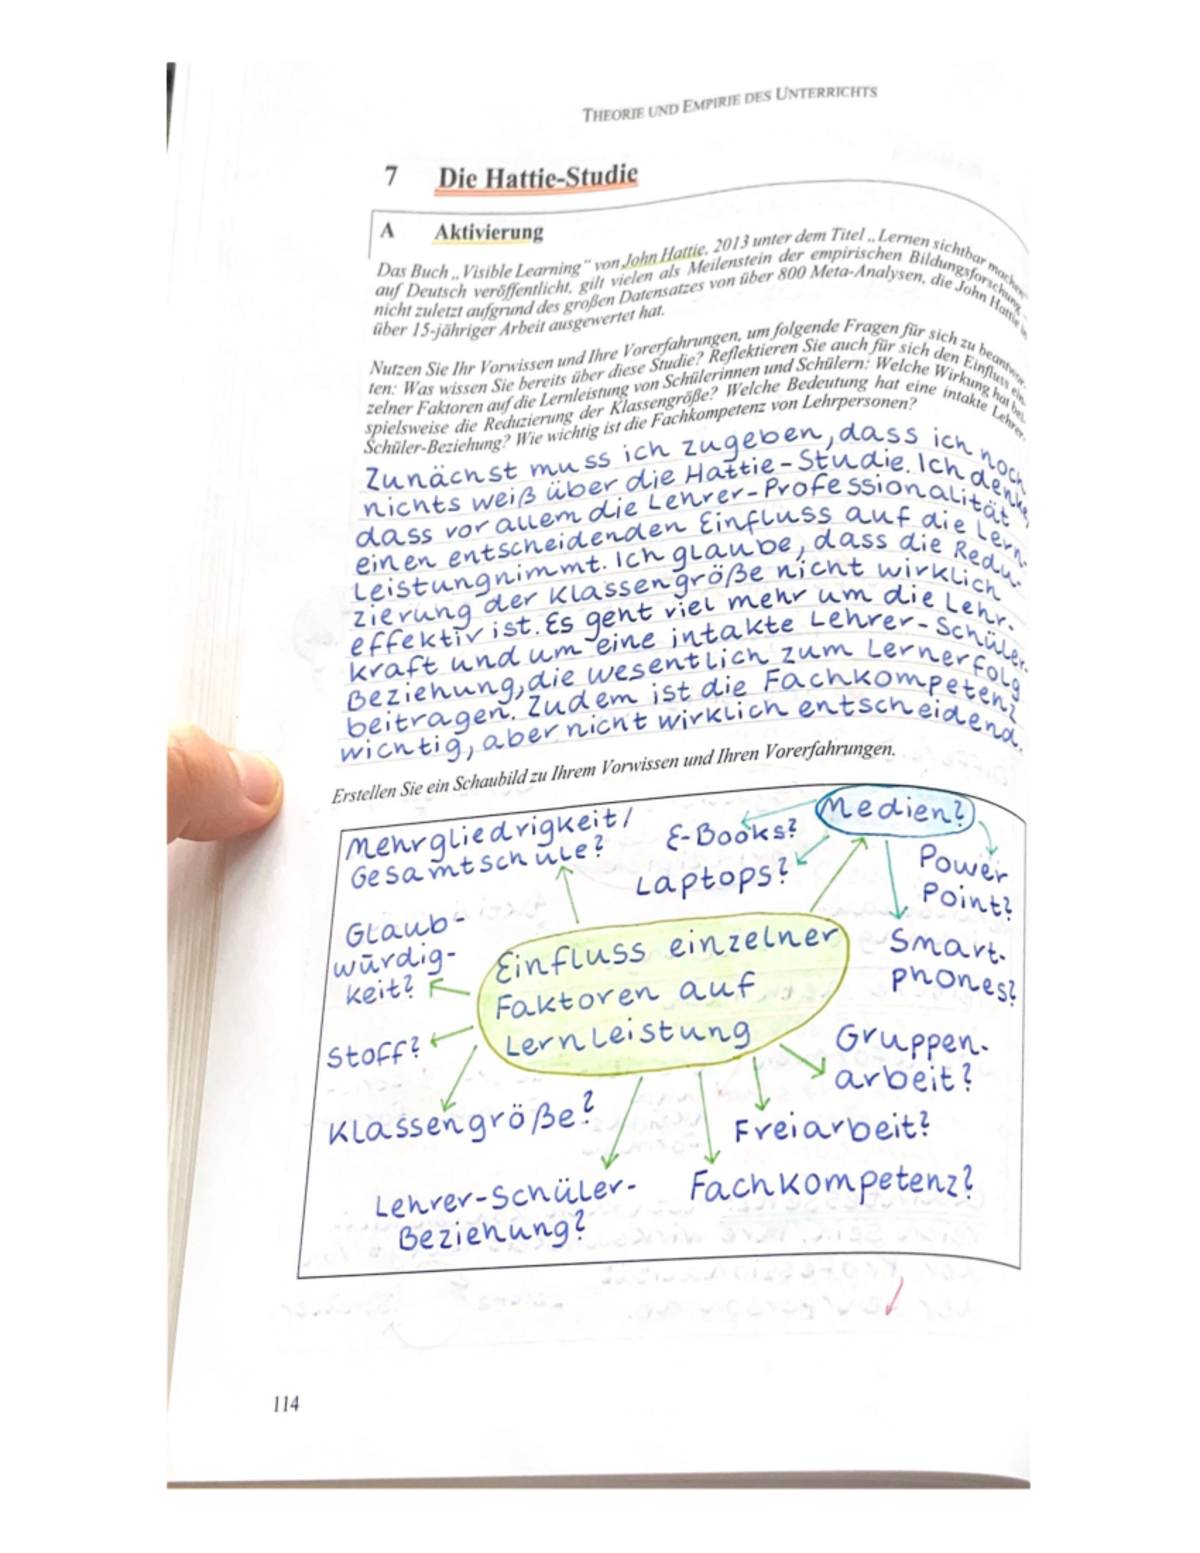 THEORIE UND EMPIRIE DES UNTERRICHTS
7 Die Hattie-Studie
A Aktivierung
Das Buch „Visible Learning“ von John Hattie, 2013 unter dem Titel „Lernen sichtbar machen“
auf Deutsch veröffentlicht, gilt vielen als Meilenstein der empirischen Bildungsforschung –
nicht zuletzt aufgrund des großen Datensatzes von über 800 Meta-Analysen, die John Hattie in
über 15-jähriger Arbeit ausgewertet hat.
Nutzen Sie Ihr Vorwissen und Ihre Vorerfahrungen, um folgende Fragen für sich zu beantwor-
ten: Was wissen Sie bereits über diese Studie? Reflektieren Sie auch für sich den Einfluss ein-
zelner Faktoren auf die Lernleistung von Schülerinnen und Schülern: Welche Wirkung hat bei-
spielsweise die Reduzierung der Klassengröße? Welche Bedeutung hat eine intakte Lehrer-
Schüler-Beziehung? Wie wichtig ist die Fachkompetenz von Lehrpersonen?
Zunächst muss ich zugeben, dass ich noch
nichts weiß über die Hattie-Studie. Ich denke,
dass vor allem die Lehrer-Professionalität
einen entscheidenden Einfluss auf die Lern-
leistung nimmt. Ich glaube, dass die Redu-
zierung der Klassengröße nicht wirklich
effektiv ist. Es geht viel mehr um die Lehr-
kraft und um eine intakte Lehrer-Schüler-
Beziehung, die wesentlich zum Lernerfolg
beitragen. Zudem ist die Fachkompetenz
wichtig, aber nicht wirklich entscheidend.
Erstellen Sie ein Schaubild zu Ihrem Vorwissen und Ihren Vorerfahrungen.
Mehrgliedrigkeit/
Gesamtschule?
E-Books?
Medien?
Laptops?
Power
Point?
Glaub-
würdig-
keit?
Einfluss einzelner
Faktoren auf
Lernleistung
Smart-
phones?
Stoff?
Gruppen-
arbeit?
Klassengröße?
Freiarbeit?
Lehrer-Schüler-
Beziehung?
Fachkompetenz?
114